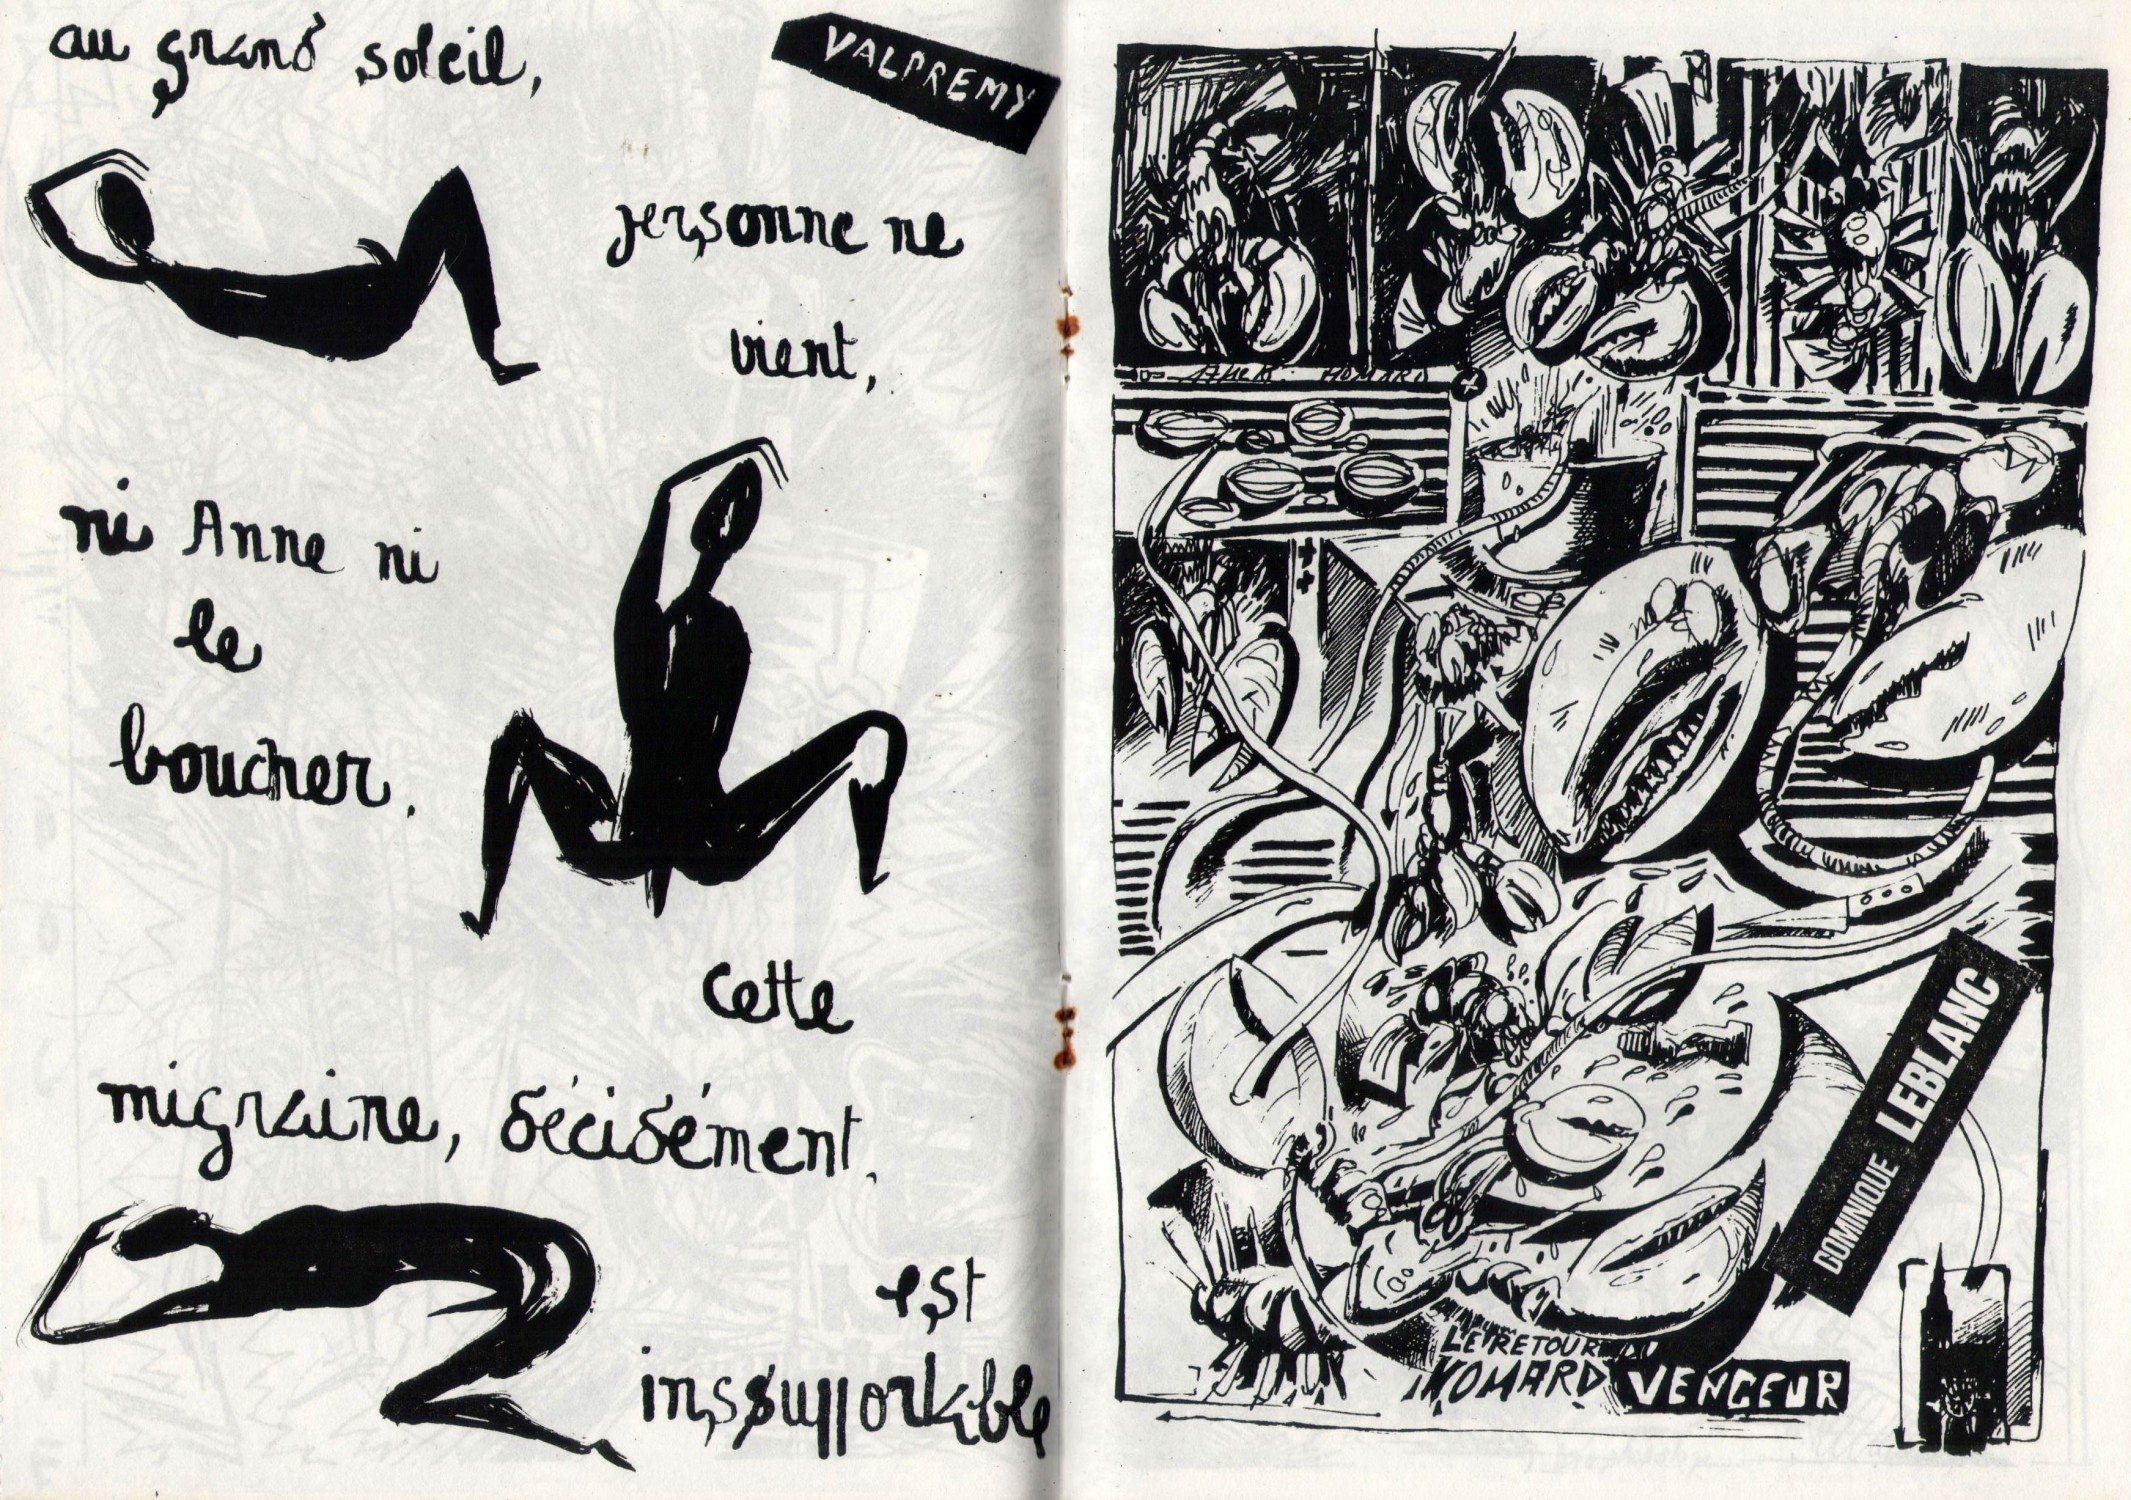 au grand soleil,
VALPREMY
personne ne
vient,
ni Anne ni
le
boucher.
cette
migraine, décidément.
est
inssupportable
HOMARD
DOMINIQUE LEBLANC
LE RETOUR DU
HOMARD VENGEUR